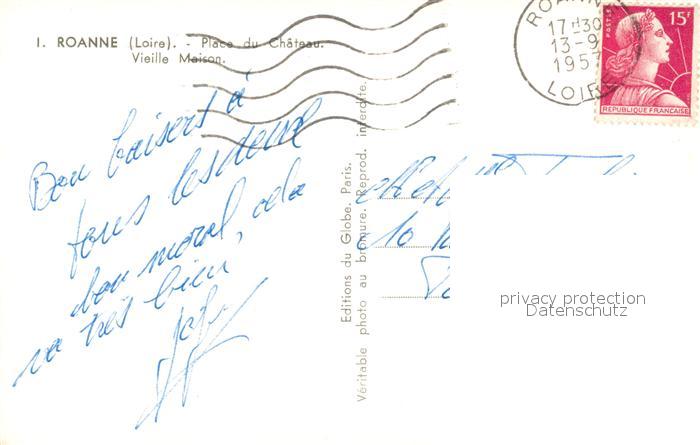 1. ROANNE (Loire). - Place du Château.
Vieille Maison.
ROANNE
17 H30
13-9
1957
LOIRE
POSTES
15F
REPUBLIQUE FRANÇAISE
Bon baisers à
tous les deux
bon moral, cela
va très bien,
Editions du Globe. Paris.
Véritable photo au bromure. Reprod. interdite.
10
privacy protection
Datenschutz